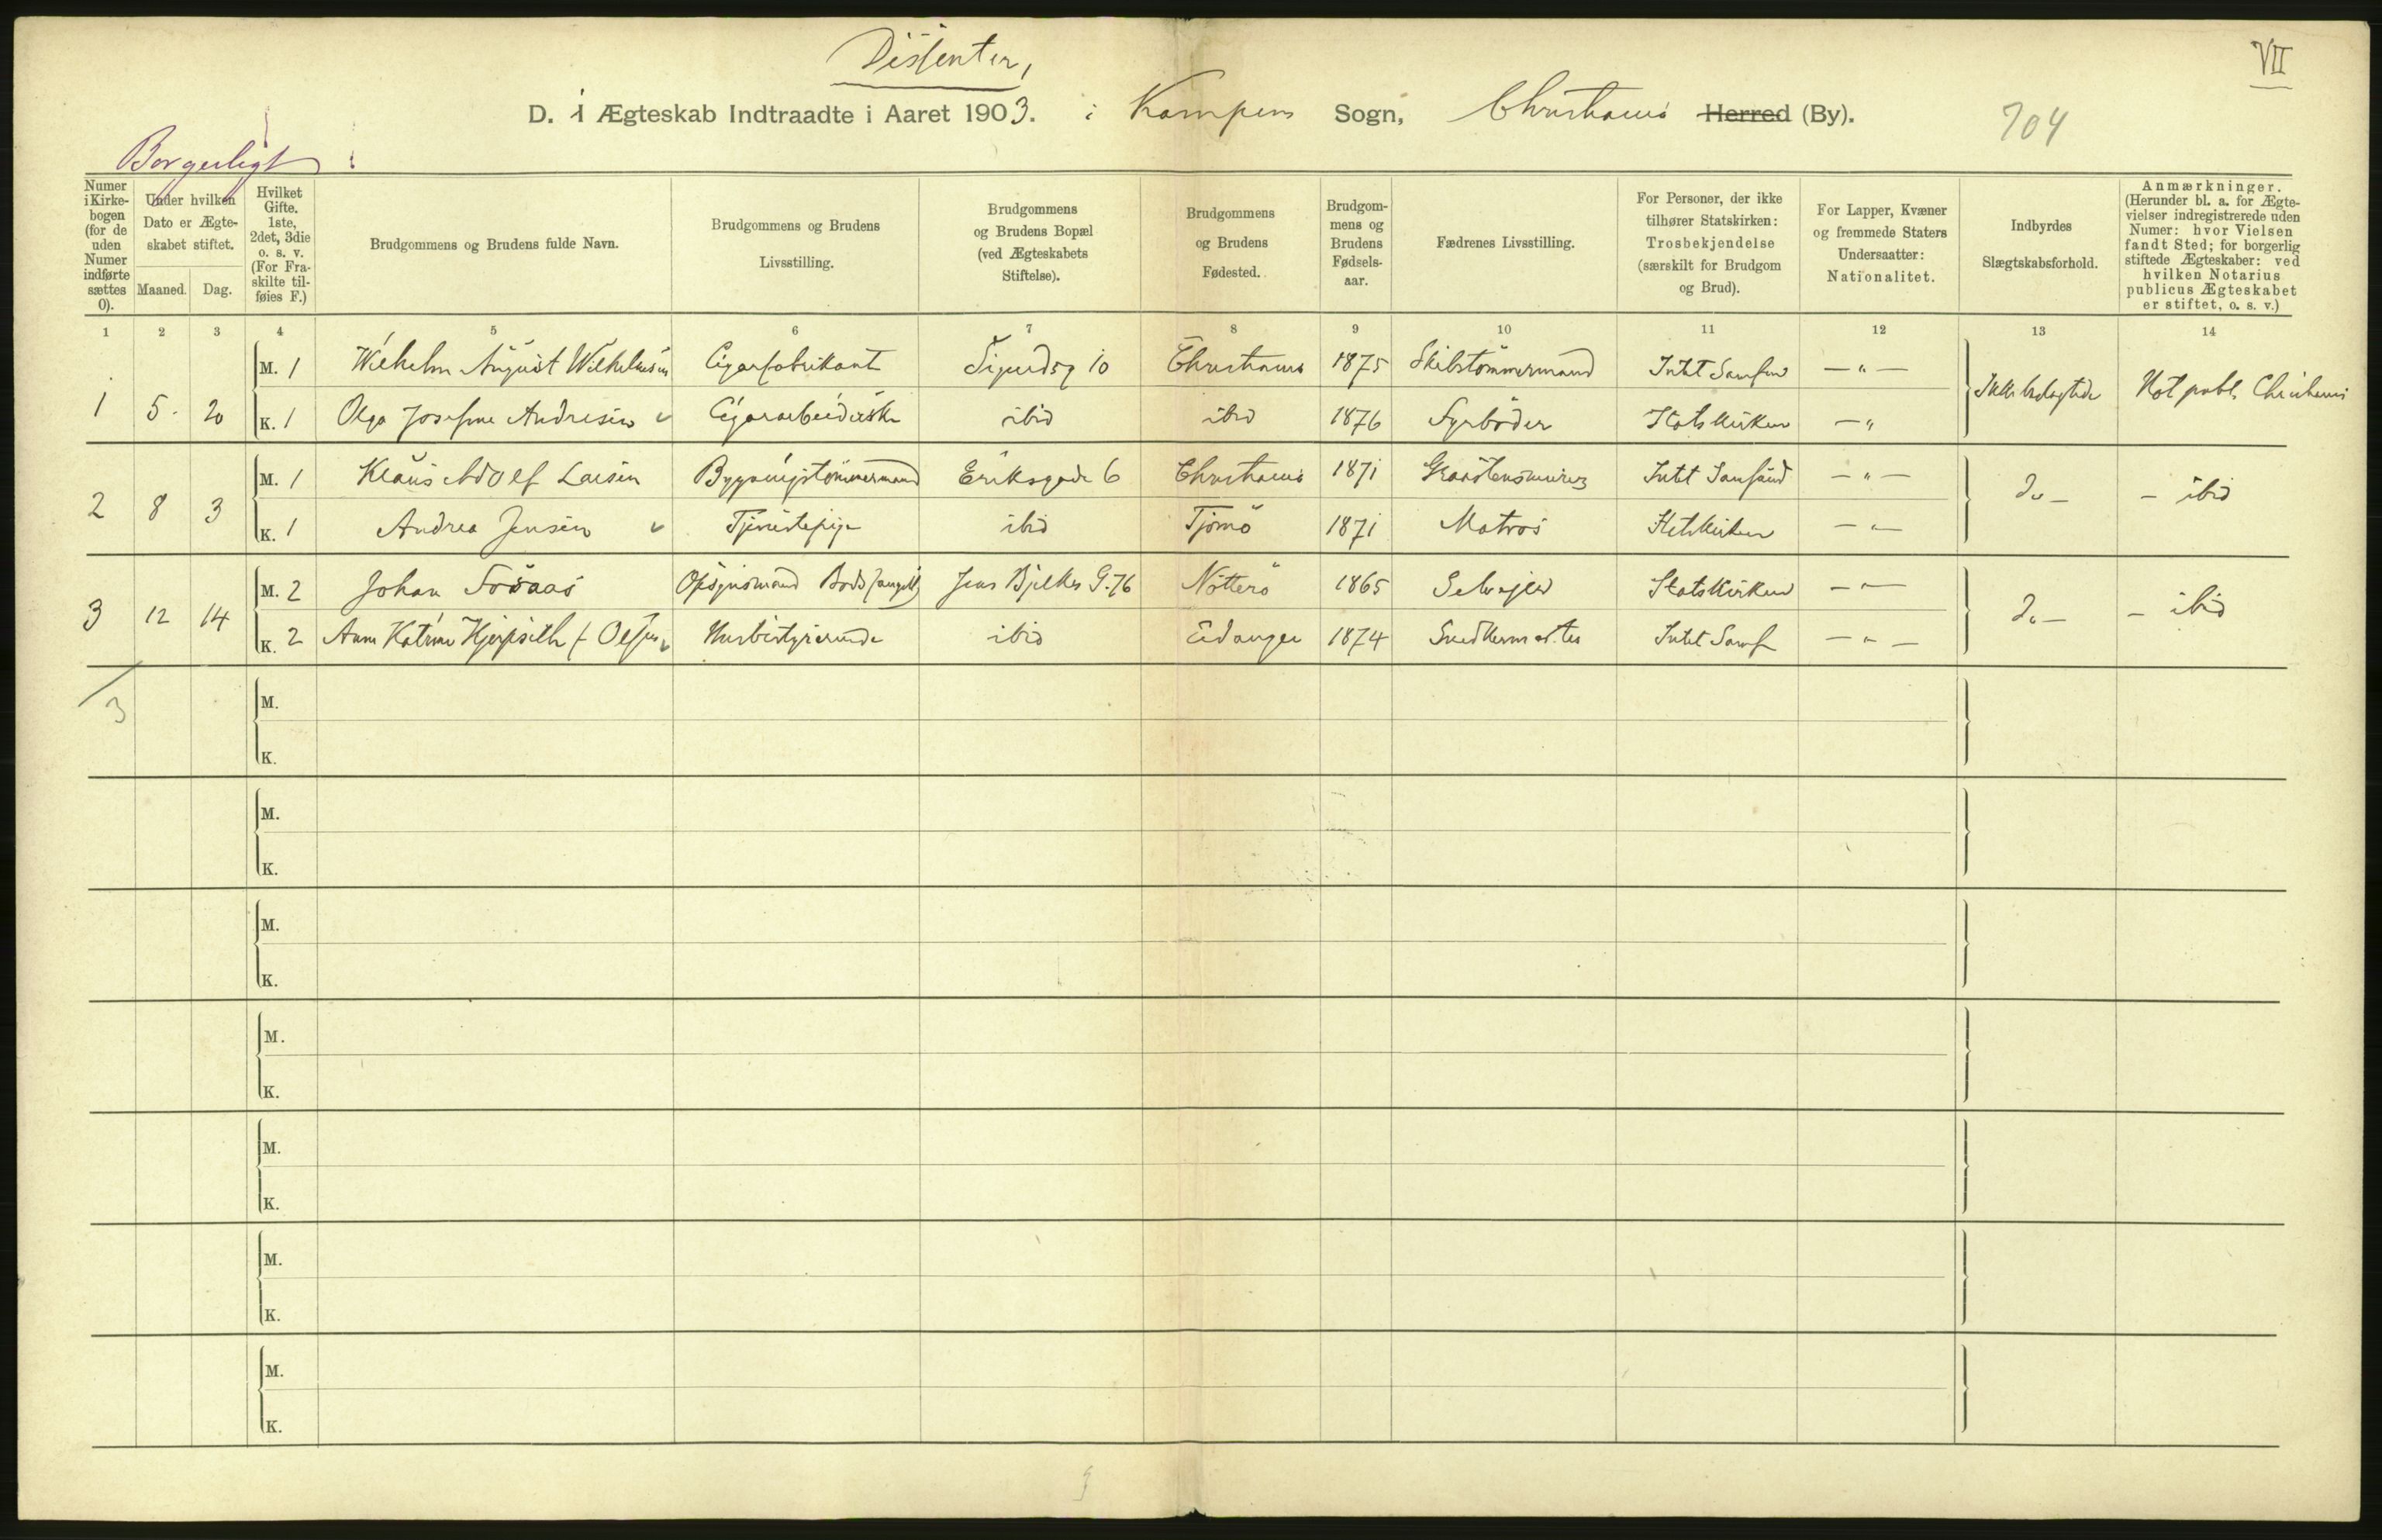 Dissenter,
VII
D. i Ægteskab Indtraadte i Aaret 1903. i Kampens Sogn, Christiania Herred (By).
704
Borgerligt
Numer i Kirke-bogen (for de uden Numer indførte sættes 0).
Under hvilken Dato er Ægte-skabet stiftet.
Maaned. Dag.
Hvilket Gifte. 1ste, 2det, 3die o. s. v. (For Fra-skilte til-føies F.)
Brudgommens og Brudens fulde Navn.
Brudgommens og Brudens Livsstilling.
Brudgommens og Brudens Bopæl (ved Ægteskabets Stiftelse).
Brudgommens og Brudens Fødested.
Brudgom-mens og Brudens Fødsels-aar.
Fædrenes Livsstilling.
For Personer, der ikke tilhører Statskirken: Trosbekjendelse (særskilt for Brudgom og Brud).
For Lapper, Kvæner og fremmede Staters Undersaatter: Nationalitet.
Indbyrdes Slægtskabsforhold.
Anmærkninger. (Herunder bl. a. for Ægte-vielser indregistrerede uden Numer: hvor Vielsen fandt Sted; for borgerlig stiftede Ægteskaber: ved hvilken Notarius publicus Ægteskabet er stiftet, o. s. v.)
1 2 3 4 5 6 7 8 9 10 11 12 13 14
1 5. 20 M. 1 Wilhelm August Wilhelmsen Cigarfabrikant Sigurdsg 10 Christiania 1875 Skibstømmermand Intet Samfund — " — Ikke beslægtede Not publ, Christiania
K. 1 Olga Josefine Andresen Cigararbeiderske ibid ibid 1876 Fyrbøder Statskirken — "
2 8 3 M. 1 Klaus Adolf Larsen Bygningstømmermand Eriksgade 6 Christiania 1871 Graastensmurer Intet Samfund — " — Do — — ibid
K. 1 Andrea Jensen Tjenestepige ibid Tjømø 1871 Matros Statskirken — " —
3 12 14 M. 2 Johan Fosaas Opsynsmand Bodsfængslet Jens Bjelkes G. 76 Nøtterø 1865 Selveier Statskirken — " — Do — — ibid
K. 2 Anna Katrine Hjerpseth f. Olsen Husbestyrerinde ibid Eidanger 1874 Snedkermester Intet Samf — " —
3
M.
K.
M.
K.
M.
K.
M.
K.
M.
K.
M.
K.
M.
K.
3